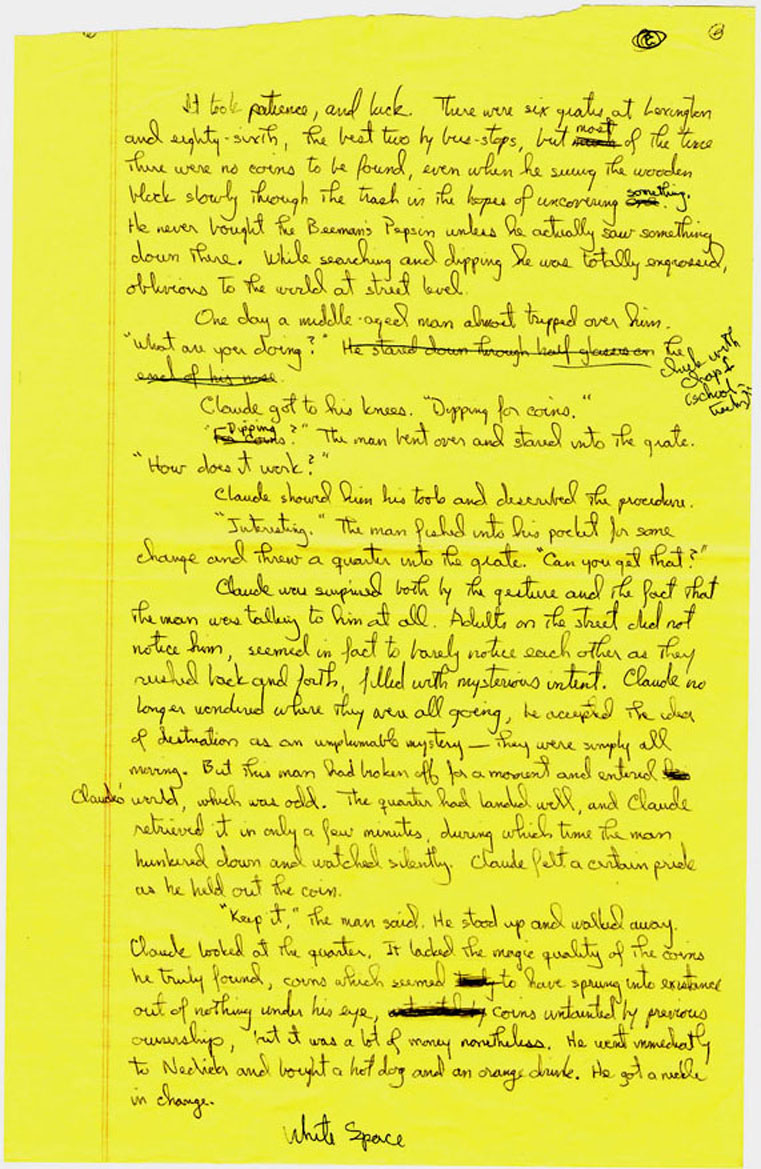 2 3
It took patience, and luck. There were six grates at Lexington
and eighty-sixth, the best two by bus-stops, but most of the time
there were no coins to be found, even when he swung the wooden
block slowly through the trash in the hopes of uncovering something.
He never bought the Beeman's Pepsin unless he actually saw something
down there. While searching and dipping he was totally engrossed,
oblivious to the world at street level.
One day a middle-aged man almost tripped over him.
"What are you doing?" He stared down through half glasses on the
end of his nose.
check with
chap 1
(school-
Claude got to his knees. "Dipping for coins."
"Dipping
For coins?" The man bent over and stared into the grate.
"How does it work?"
Claude showed him his tools and described the procedure.
"Interesting." The man fished into his pocket for some
change and threw a quarter into the grate. "Can you get that?"
Claude was surprised both by the gesture and the fact that
the man was talking to him at all. Adults on the street did not
notice him, seemed in fact to barely notice each other as they
rushed back and forth, filled with mysterious intent. Claude no
longer wondered where they were all going, he accepted the idea
of destination as an unplumable mystery — they were simply all
moving. But this man had broken off for a moment and entered his
Claude's world, which was odd. The quarter had landed well, and Claude
retrieved it in only a few minutes, during which time the man
hunkered down and watched silently. Claude felt a certain pride
as he held out the coin.
"Keep it," the man said. He stood up and walked away.
Claude looked at the quarter. It lacked the magic quality of the coins
he truly found, coins which seemed truly to have sprung into existance
out of nothing under his eye, coins untainted by previous
ownership, but it was a lot of money nonetheless. He went immediatly
to Nedicks and bought a hot dog and an orange drink. He got a nickle
in change.
White Space